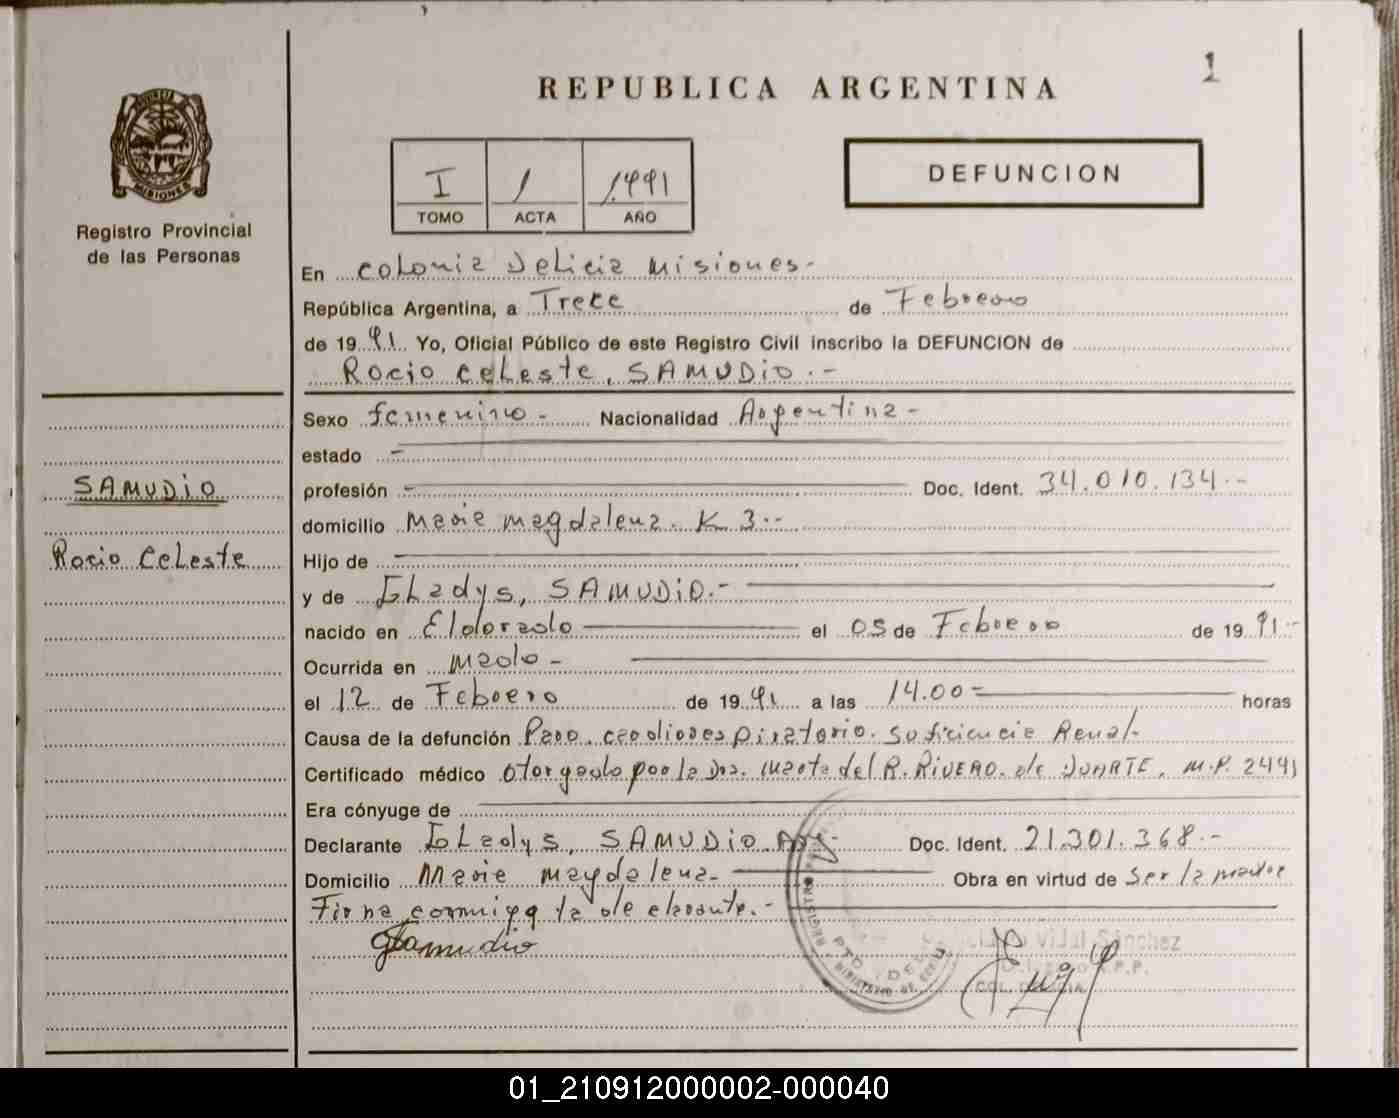 1
REPUBLICA ARGENTINA
PROVINCIA DE
MISIONES
Registro Provincial
de las Personas
I 1 1.991
TOMO ACTA AÑO
DEFUNCION
En Colonia Delicia Misiones.-
República Argentina, a Trece de Febrero
de 1991 Yo, Oficial Público de este Registro Civil inscribo la DEFUNCION de
Rocio Celeste, SAMUDIO.-
SAMUDIO
Rocio Celeste
Sexo femenino - Nacionalidad Argentina -
estado -
profesión - Doc. Ident. 34.010.134.-
domicilio Maria Magdalena. K 3.-
Hijo de
y de Gladys, SAMUDIO.-
nacido en Eldorado el 05 de Febrero de 1991.-
Ocurrida en Mado -
el 12 de Febrero de 1991 a las 14.00 horas
Causa de la defunción Paro. cardiorespiratorio. suficiencia Renal-
Certificado médico otorgado por la Dra. Marta del R. RIVERO. de DUARTE, M.P. 2441
Era cónyuge de
Declarante Gladys, SAMUDIO. Doc. Ident. 21.301.368.-
Domicilio Maria magdalena- Obra en virtud de Ser la madre
Firma conmigo la declarante.-
GSamudio
Vidal Sánchez
R.P.P.